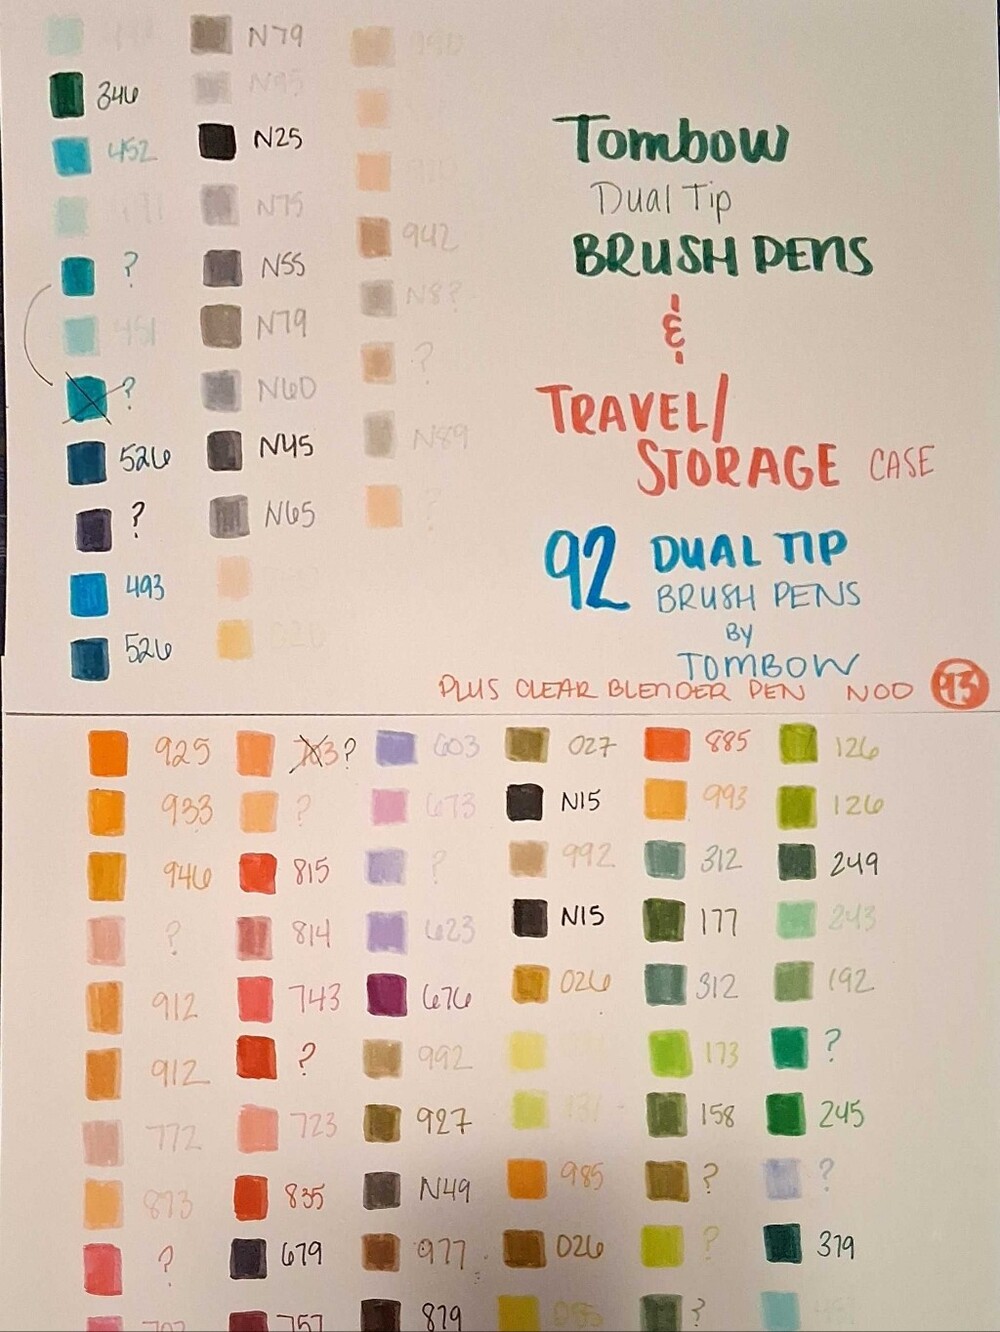 N79
990
346
N95
452
N25
Tombow
Dual Tip
N75
942
BRUSH PENS
?
N55
N8?
&
451
N79
?
?
N60
N89
TRAVEL/
526
N45
STORAGE CASE
?
N65
?
92 DUAL TIP
493
BRUSH PENS
526
020
BY
TOMBOW
PLUS CLEAR BLENDER PEN N00 93
925 703? 603 027 885 126
933 ? 673 N15 993 126
946 815 ? 992 312 249
? 814 623 N15 177 243
912 743 676 026 312 192
912 ? 992 173 ?
772 723 927 131 158 245
873 835 N49 985 ? ?
? 679 977 026 ? 379
703 757 879 055 ?